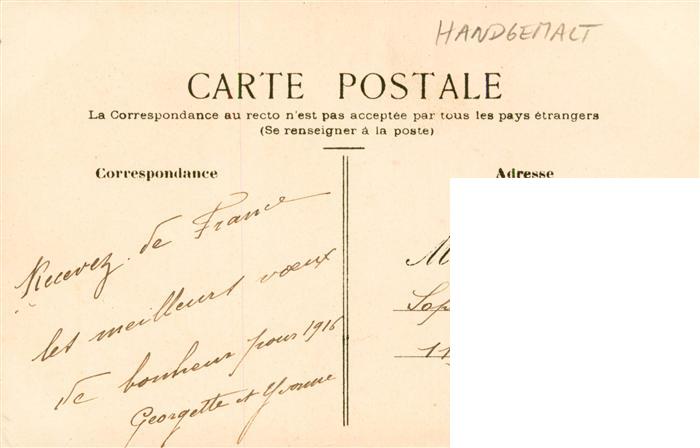 HANDGEMALT
CARTE POSTALE
La Correspondance au recto n'est pas acceptée par tous les pays étrangers
(Se renseigner à la poste)
Correspondance
Adresse
Recevez de France
les meilleurs vœux
de bonheur pour 1916
Georgette et Yvonne
M
Sop
11